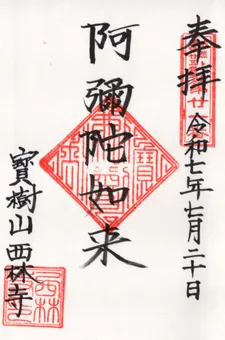 奉拝
令和七年七月二十日
阿彌陀如来
寶樹山西林寺